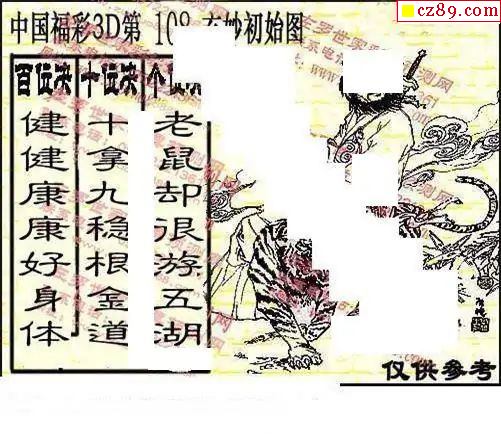 cz89.com
中国福彩3D第 10 妙初始图
百位决
健健康康好身体
十位决
十拿九稳根金道
个位
老鼠却退游五湖
仅供参考